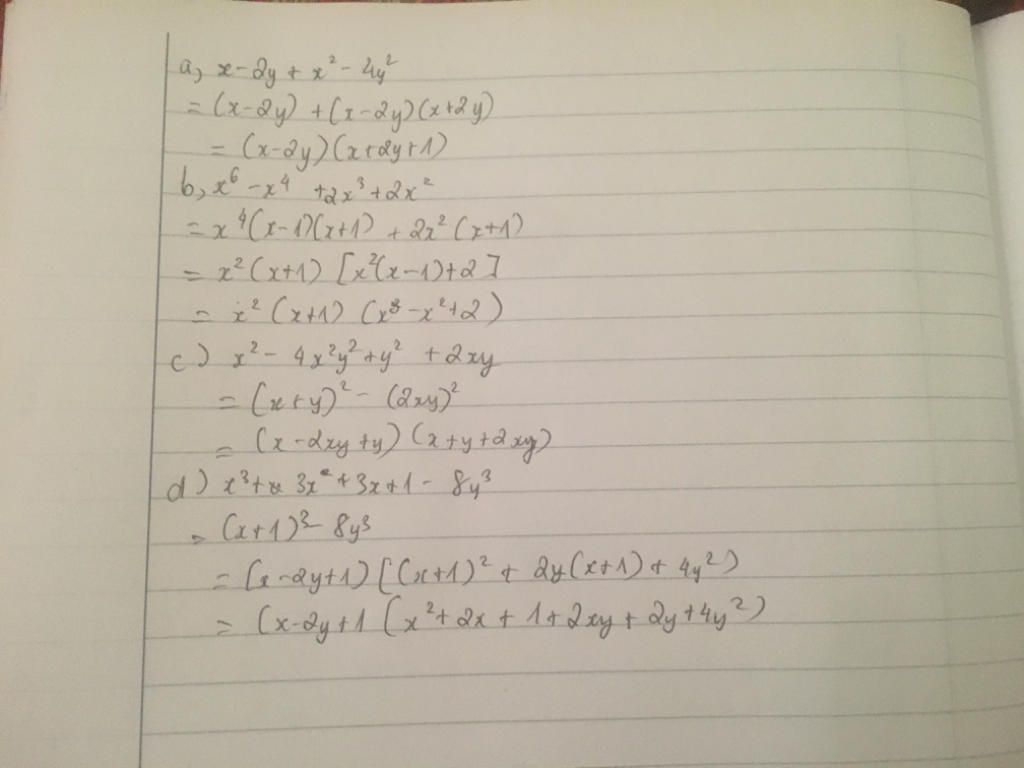 a, x - 2y + x² - 4y²
= (x-2y) + (x-2y)(x+2y)
= (x-2y)(x+2y+1)
b, x⁶ - x⁴ + 2x³ + 2x²
= x⁴(x-1)(x+1) + 2x²(x+1)
= x²(x+1) [x²(x-1)+2]
= x²(x+1) (x³-x²+2)
c) x² - 4x²y² + y² + 2xy
= (x+y)² - (2xy)²
= (x-2xy+y) (x+y+2xy)
d) x³ + 3x² + 3x + 1 - 8y³
= (x+1)³ - 8y³
= (x-2y+1) [(x+1)² + 2y(x+1) + 4y²)
= (x-2y+1 (x² + 2x + 1 + 2xy + 2y + 4y²)